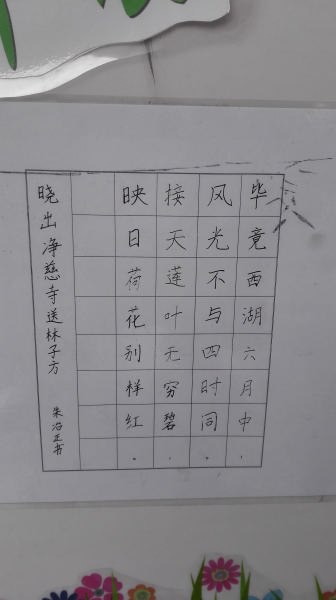 毕竟西湖六月中，
风光不与四时同。
接天莲叶无穷碧，
映日荷花别样红。
晓出净慈寺送林子方